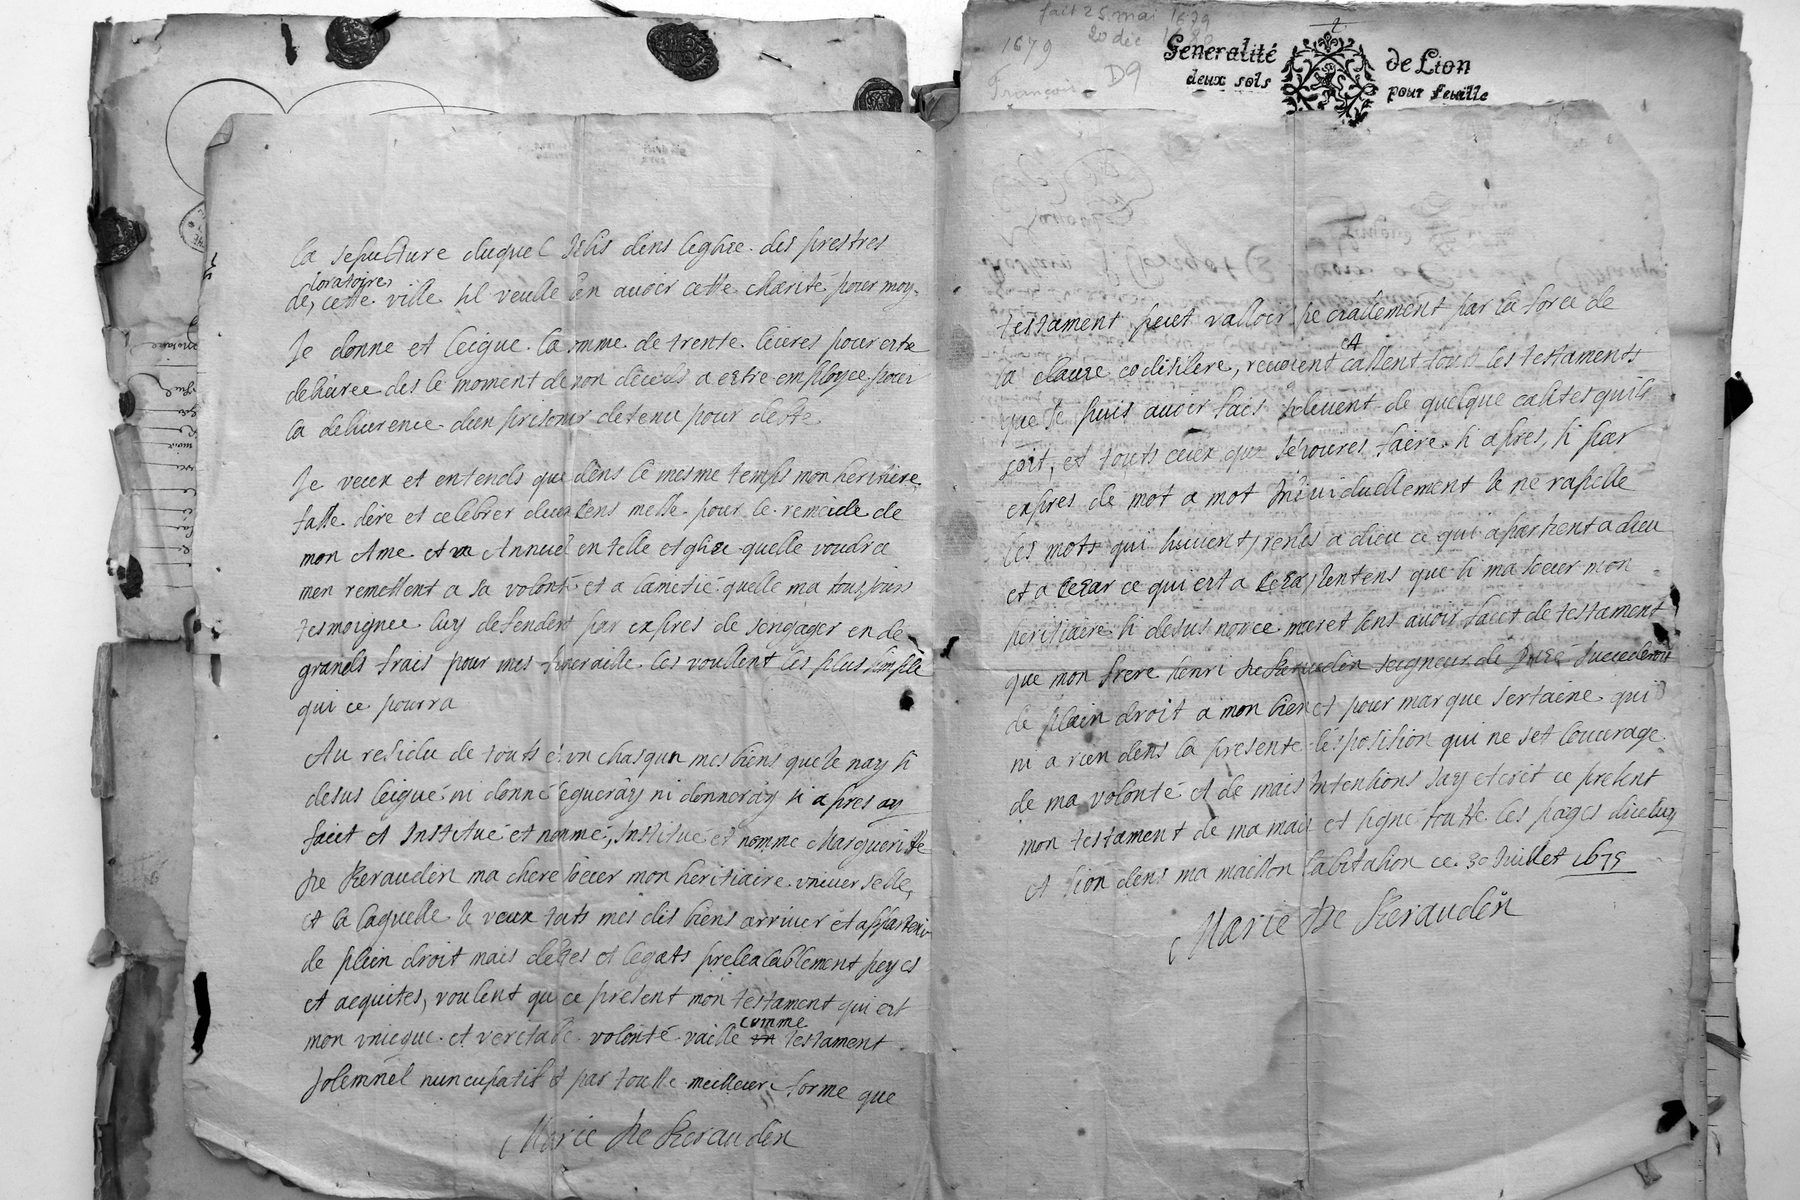 fait 25 mai 1679
20 dec 1680
1679
D9
2
Generalité de Lion
deux sols pour feuille
la sepulture duquel Jehis dens leglise des prestres
loratoire
de, cette ville sil veulle en avoir cette charité pour moy
Je donne et leigue la somme de trente livres pour estre
delivree des le moment de mon deceds a estre employee pour
la delivrence dun prisonir detenu pour dette
Je veux et entends que dens le mesme temps mon heritiere
fasse dire et celebrer deux cens messe pour le remeide de
mon Ame et un Annuel en telle esglise quelle voudra
men remettent a sa volonté et a lamitié quelle ma tousjours
tesmoignee luy defendent par expres de sengager en de
grands frais pour mes funeraille les voullent les plus simple
qui ce pourra
Au residu de touts et un chasqun mes biens que Je nay si
desus leigué ni donné legueray ni donneray si apres ay
faict et Institué et nommé, Institué et nomme Margueritte
De Keraudin ma chere soeur mon heritiaire universelle,
et a laquelle Je veux touts mes dis biens arriver et appartenir
de plein droit mais dettes et legats prealablement peyes
et aequites, voulent que ce present mon testament qui est
mon unicque et veritable volonté vaille
comme
un testament
solemnel nuncupatif et par toutte meilleure forme que
Marie De Keraudin
testament peut valloir specialement par la force de
la clause codisilere, revocent et cassent tous les testaments
que Je puis avoir fais solevent de quelque calites quils
soit, et touts ceux que Je poures faire si apres, si par
expres de mot a mot Individuellement Je ne rapelle
les mots qui suivent, rends a dieu ce qui apartient a dieu
et a Cesar ce qui est a Cesar, Jentens que si ma soeur mon
heritiaire si desus nomee meuret sens avoir faict de testament
que mon frere henri De Keraudin seigneur de succederoit
de plain droit a mon bien et pour marque sertaine qui
ni a rien dens la presente disposition qui ne set louverage
de ma volonté et de mais Intentions Jay escrit ce present
mon testament de ma main et signé toutte les pages diceluy
A lion dens ma maison dabitation ce 30 Juillet 1675
Marie De Keraudin